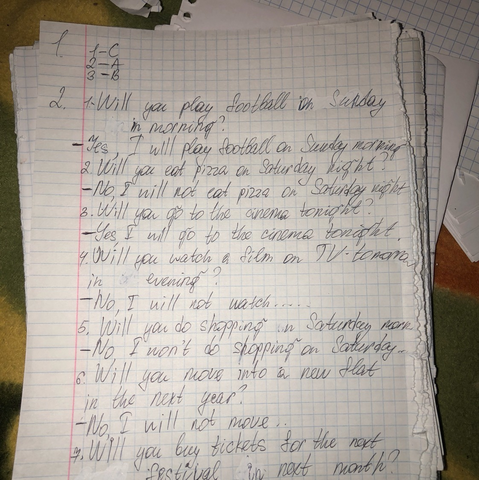 1. 1-C
2-A
3-B
2. 1. Will you play football on Sunday
in morning?
- Yes, I will play football on Sunday morning
2. Will you eat pizza on Saturday night?
- No, I will not eat pizza on Saturday night
3. Will you go to the cinema tonight?
- Yes, I will go to the cinema tonight.
4. Will you watch a film on TV tomorro
in evening?
- No, I will not watch.....
5. Will you do shopping in Saturday morn
- No, I won't do shopping on Saturday..
6. Will you move into a new flat
in the next year?
- No, I will not move..
7. Will you buy tickets for the next
festival in next month?